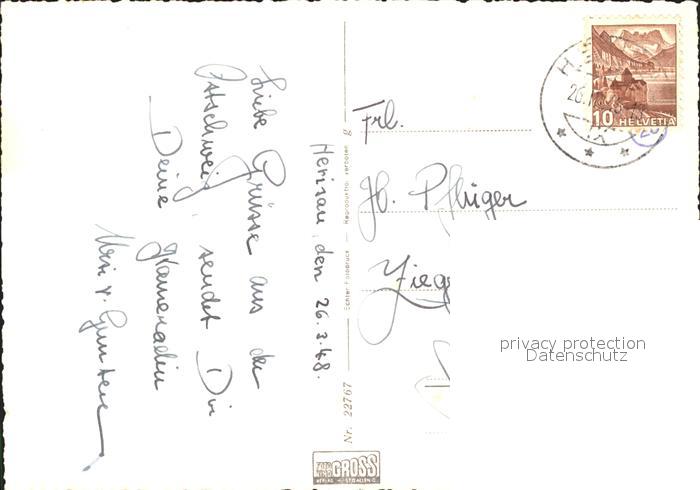 Herisau, den 26.3.48.
Liebe Grüsse aus der
Ostschweiz, sendet Dir
Deine Kameradin
v. Gunten
Frl.
Pflüger
Zieg
10 HELVETIA
privacy protection
Datenschutz
Echter Fotodruck — Reproduktion verboten
Nr. 22767
GROSS